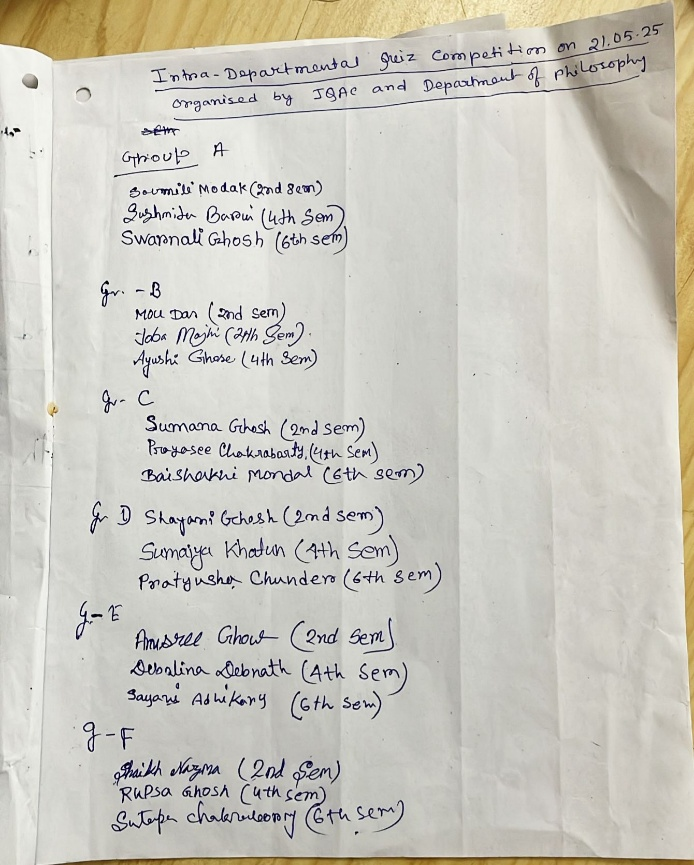 Intra-Departmental Quiz Competition on 21.05.25
organised by IQAC and Department of Philosophy
Group A
Soumili Modak (2nd Sem)
Sushmita Barui (4th Sem)
Swarnali Ghosh (6th sem)
Gr. - B
Mou Dan (2nd Sem)
Joba Majhi (Sem).
Ayushi Ghose (4th Sem)
Gr- C
Sumana Ghosh (2nd sem)
Prayasee Chakrabarty, (4th Sem)
Baishakhi Mondal (6th sem)
Gr D Shayani Ghosh (2nd sem)
Sumaiya Khatun (4th Sem)
Pratyusha Chunder (6th sem)
G-E
Anusree (2nd Sem)
Debalina Debnath (4th Sem)
Sayani Adhikary (6th Sem)
G-F
Shaikh Nazma (2nd Sem)
Rupsa Ghosh (4th sem)
Sutapa (6th sem)